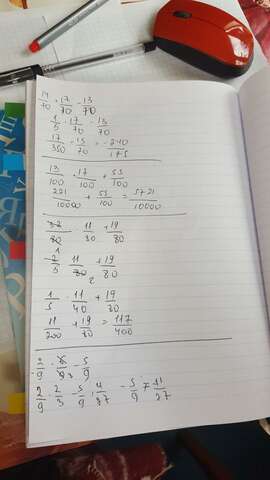 14/70 · 17/70 - 13/70
1/5 · 17/70 - 13/70
17/350 - 13/70 = -240/175
13/100 · 17/100 + 55/100
221/10000 + 55/100 = 5721/10000
32/80 · 11/80 + 19/80
2/5 · 11/80 + 19/80
1/5 · 11/40 + 19/80
11/200 + 19/80 = 117/400
2/9 · 6/9 - 5/9
2/9 · 2/3 - 5/9 · 4/27 - 5/9 = 11/27